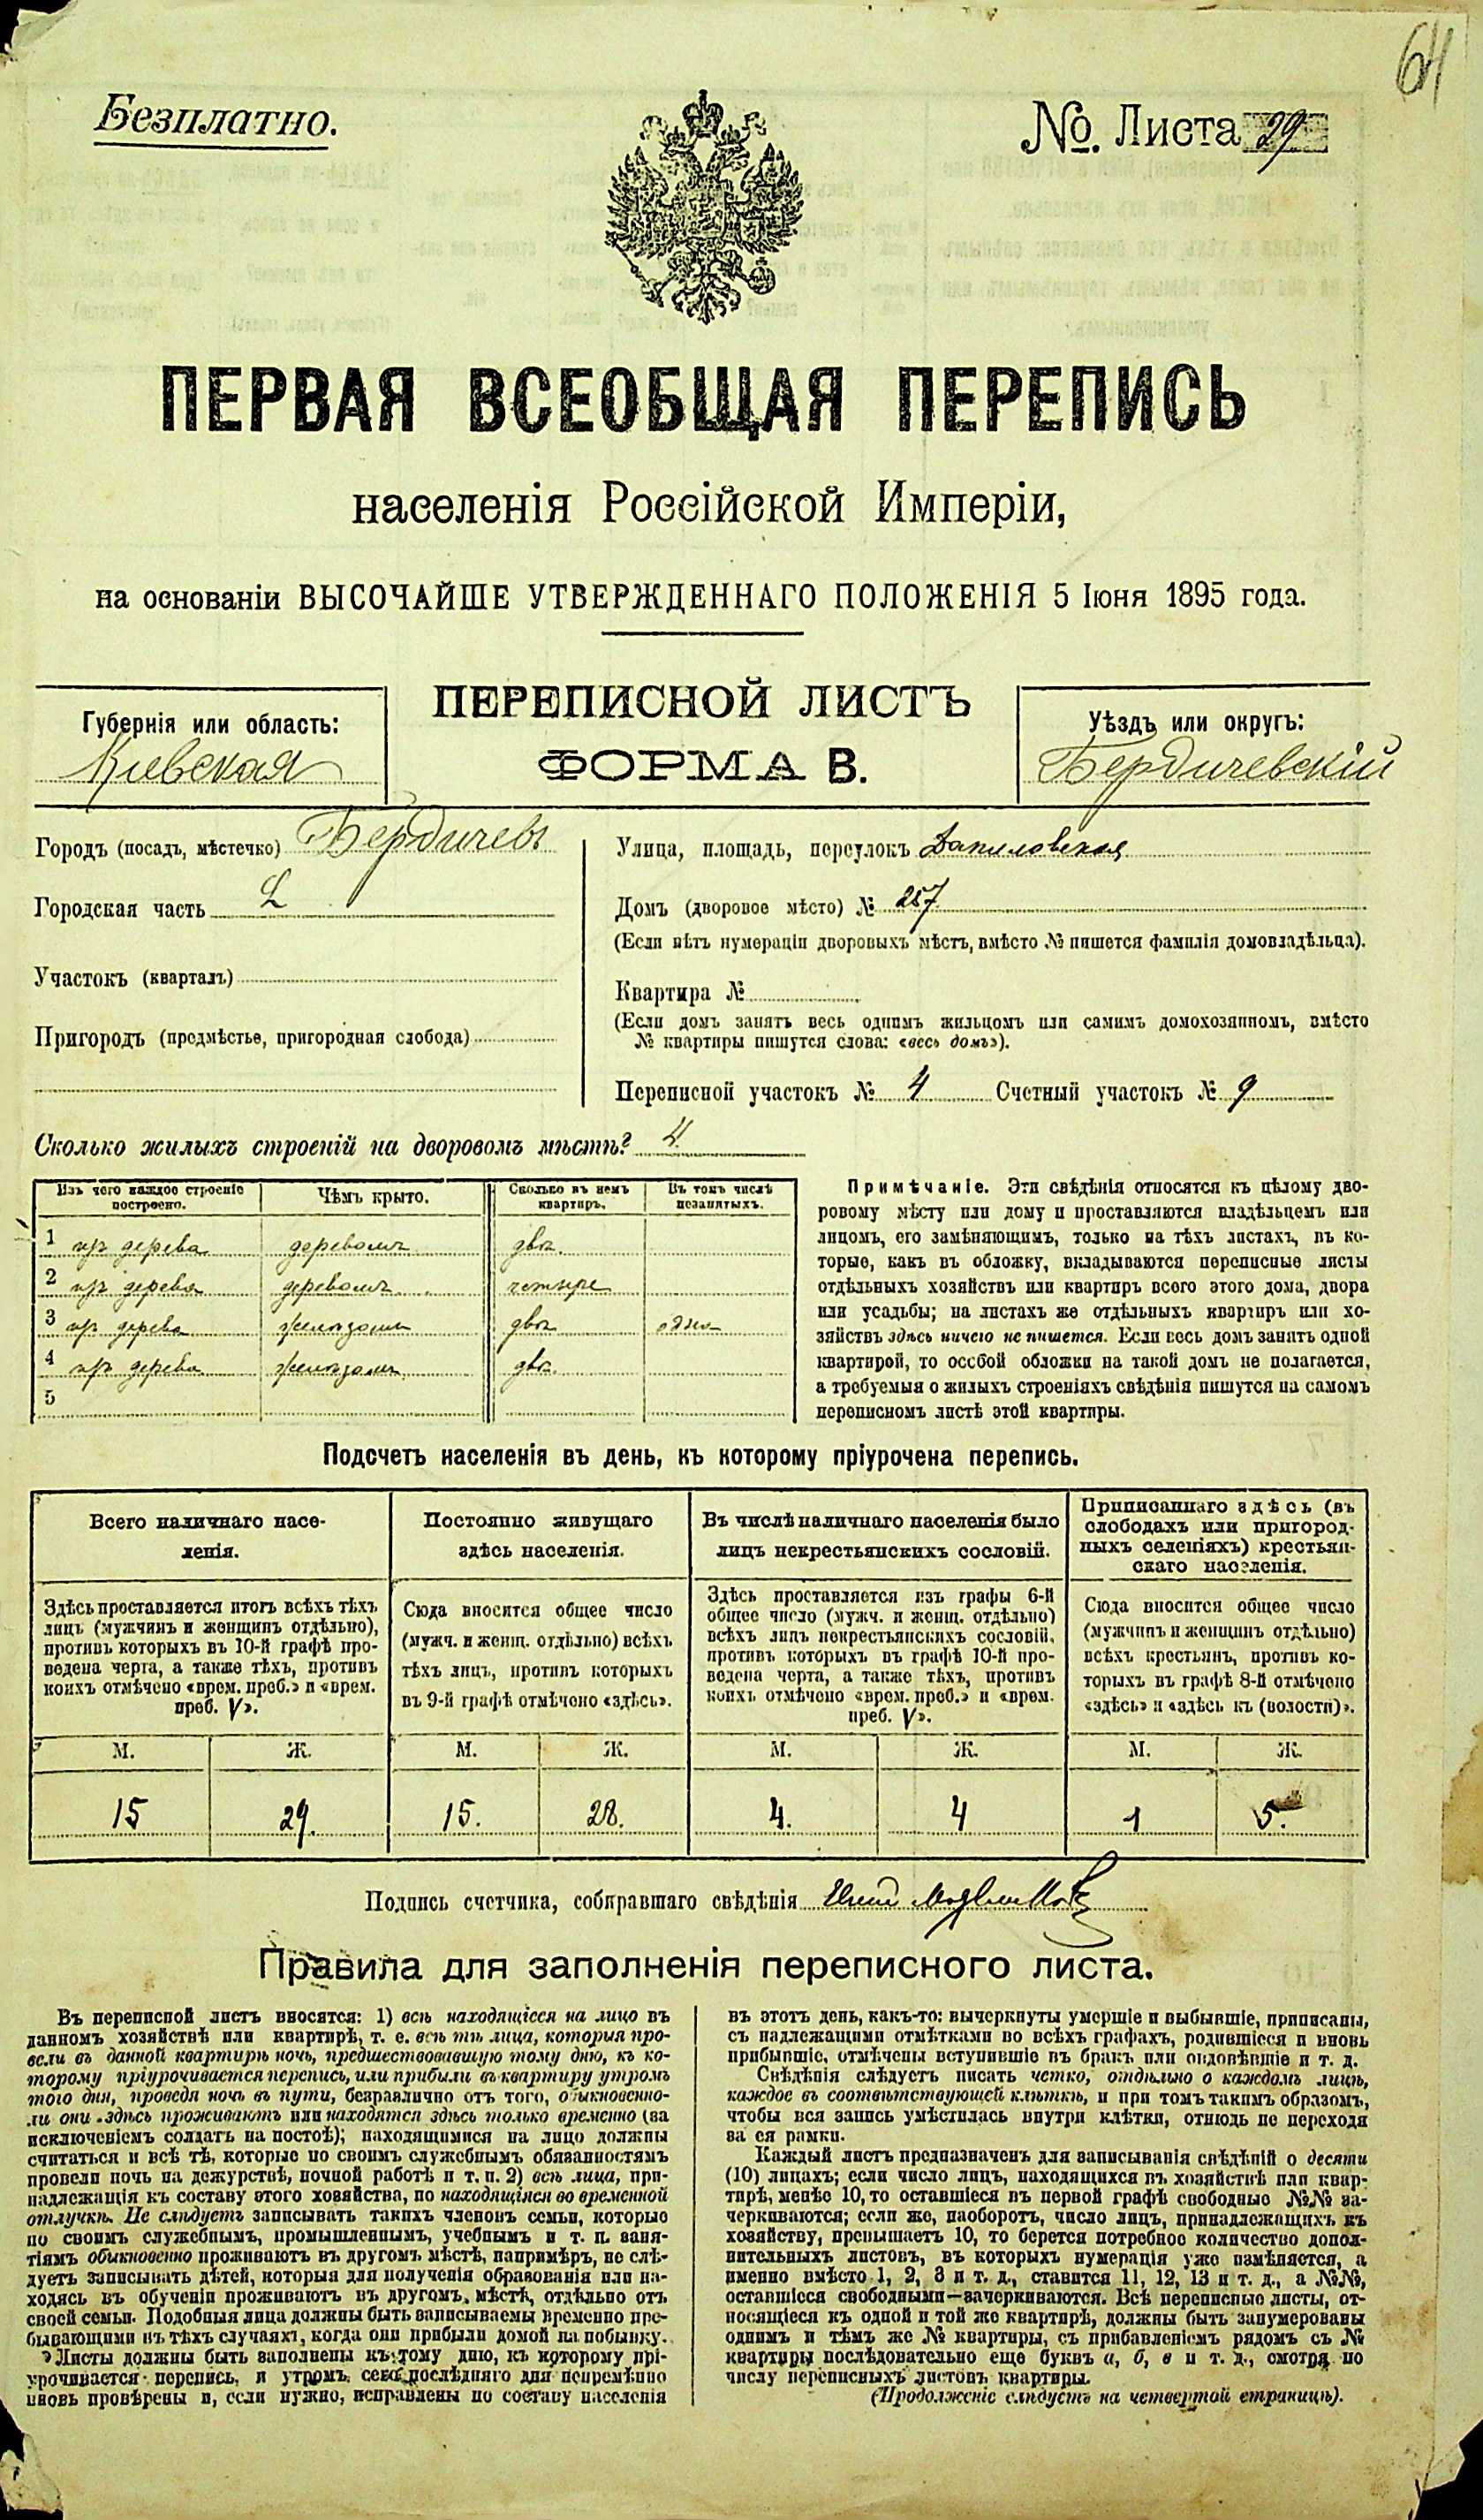 64
Безплатно.
№. Листа 29
ПЕРВАЯ ВСЕОБЩАЯ ПЕРЕПИСЬ
населенія Россійской Имперіи,
на основаніи ВЫСОЧАЙШЕ УТВЕРЖДЕННАГО ПОЛОЖЕНІЯ 5 Іюня 1895 года.
ПЕРЕПИСНОЙ ЛИСТЪ
ФОРМА В.
Губернія или область:
Киевская
Уѣздъ или округъ:
Бердичевскій
Городъ (посадъ, мѣстечко) Бердичевъ
Городская часть
Участокъ (кварталъ)
Пригородъ (предмѣстье, пригородная слобода)
Улица, площадь, переулокъ Даниловская
Домъ (дворовое мѣсто) № 257
(Если нѣтъ нумераціи дворовыхъ мѣстъ, вмѣсто № пишется фамилія домовладѣльца).
Квартира №
(Если домъ занятъ весь однимъ жильцомъ или самимъ домохозяиномъ, вмѣсто
№ квартиры пишутся слова: «весь домъ»).
Переписной участокъ № 4 Счетный участокъ № 9
Сколько жилыхъ строеній на дворовомъ мѣстѣ? 4
Изъ чего каждое строеніе построено. Чѣмъ крыто. Сколько въ немъ квартиръ. Въ томъ числѣ незанятыхъ.
1 изъ дерева деревомъ двѣ
2 изъ дерева деревомъ четыре
3 изъ дерева желѣзомъ двѣ одна
4 изъ дерева желѣзомъ двѣ
5
Примѣчаніе. Эти свѣдѣнія относятся къ цѣлому дво-
ровому мѣсту или дому и проставляются владѣльцемъ или
лицомъ, его замѣняющимъ, только на тѣхъ листахъ, въ ко-
торые, какъ въ обложку, вкладываются переписные листы
отдѣльныхъ хозяйствъ или квартиръ всего этого дома, двора
или усадьбы; на листахъ же отдѣльныхъ квартиръ или хо-
зяйствъ здѣсь ничего не пишется. Если весь домъ занятъ одной
квартирой, то особой обложки на такой домъ не полагается,
а требуемыя о жилыхъ строеніяхъ свѣдѣнія пишутся на самомъ
переписномъ листѣ этой квартиры.
Подсчетъ населенія въ день, къ которому пріурочена перепись.
Всего наличнаго насе-
ленія.
Постоянно живущаго
здѣсь населенія.
Въ числѣ наличнаго населенія было
лицъ некрестьянскихъ сословій.
Приписаннаго здѣсь (въ
слободахъ или пригород-
ныхъ селеніяхъ) крестьян-
скаго населенія.
Здѣсь проставляется итогъ всѣхъ тѣхъ
лицъ (мужчинъ и женщинъ отдѣльно),
противъ которыхъ въ 10-й графѣ про-
ведена черта, а также тѣхъ, противъ
коихъ отмѣчено «врем. преб.» и «врем.
преб. V».
Сюда вносится общее число
(мужч. и женщ. отдѣльно) всѣхъ
тѣхъ лицъ, противъ которыхъ
въ 9-й графѣ отмѣчено «здѣсь».
Здѣсь проставляется изъ графы 6-й
общее число (мужч. и женщ. отдѣльно)
всѣхъ лицъ некрестьянскихъ сословій,
противъ которыхъ въ графѣ 10-й про-
ведена черта, а также тѣхъ, противъ
коихъ отмѣчено «врем. преб.» и «врем.
преб. V».
Сюда вносится общее число
(мужчинъ и женщинъ отдѣльно)
всѣхъ крестьян, противъ ко-
торыхъ въ графѣ 8-й отмѣчено
«здѣсь» и «здѣсь къ (волости)».
М. Ж. М. Ж. М. Ж. М. Ж.
15 29. 15. 28. 4. 4 1 5.
Подпись счетчика, собиравшаго свѣдѣнія
Правила для заполненія переписного листа.
Въ переписной листъ вносятся: 1) всѣ находящіеся на лицо въ
данномъ хозяйствѣ или квартирѣ, т. е. всѣ тѣ лица, которыя про-
вели въ данной квартирѣ ночь, предшествовавшую тому дню, къ ко-
торому пріурочивается перепись, или прибыли въ квартиру утромъ
того дня, проведя ночь въ пути, безразлично отъ того, обыкновенно-
ли они здѣсь проживаютъ или находятся здѣсь только временно (за
исключеніемъ солдатъ на постоѣ); находящимися на лицо должны
считаться и всѣ тѣ, которые по своимъ служебнымъ обязанностямъ
провели ночь на дежурствѣ, ночной работѣ и т. п. 2) всѣ лица, при-
надлежащія къ составу этого хозяйства, но находящіяся во временной
отлучкѣ. Не слѣдуетъ записывать такихъ членовъ семьи, которые
по своимъ служебнымъ, промышленнымъ, учебнымъ и т. п. заня-
тіямъ обыкновенно проживаютъ въ другомъ мѣстѣ, напримѣръ, не слѣ-
дуетъ записывать дѣтей, которыя для полученія образованія или на-
ходясь въ обученіи проживаютъ въ другомъ мѣстѣ, отдѣльно отъ
своей семьи. Подобныя лица должны быть записываемы временно пре-
бывающими въ тѣхъ случаяхъ, когда они прибыли домой на побывку.
Листы должны быть заполнены къ тому дню, къ которому прі-
урочивается перепись, и утромъ сего послѣдняго дня непремѣнно
вновь провѣрены и, если нужно, исправлены по составу населенія
въ этотъ день, какъ-то: вычеркнуты умершіе и выбывшіе, приписаны,
съ надлежащими отмѣтками во всѣхъ графахъ, родившіеся и вновь
прибывшіе, отмѣчены вступившіе въ бракъ или овдовѣвшіе и т. д.
Свѣдѣнія слѣдуетъ писать четко, отдѣльно о каждомъ лицѣ,
каждое въ соотвѣтствующей клѣткѣ, и при томъ такимъ образомъ,
чтобы вся запись умѣстилась внутри клѣтки, отнюдь не переходя
за ея рамки.
Каждый листъ предназначенъ для записыванія свѣдѣній о десяти
(10) лицахъ; если число лицъ, находящихся въ хозяйствѣ или квар-
тирѣ, менѣе 10, то оставшіеся въ первой графѣ свободные №№ за-
черкиваются; если же, наоборотъ, число лицъ, принадлежащихъ къ
хозяйству, превышаетъ 10, то берется потребное количество допол-
нительныхъ листовъ, въ которыхъ нумерація уже измѣняется, а
именно вмѣсто 1, 2, 3 и т. д., ставится 11, 12, 13 и т. д., а №№,
оставшіеся свободными—зачеркиваются. Всѣ переписные листы, от-
носящіеся къ одной и той же квартирѣ, должны быть занумерованы
однимъ и тѣмъ же № квартиры, съ прибавленіемъ рядомъ съ №
квартиры послѣдовательно еще буквъ а, б, в и т. д., смотря по
числу переписныхъ листовъ квартиры.
(Продолженіе слѣдуетъ на четвертой страницѣ).